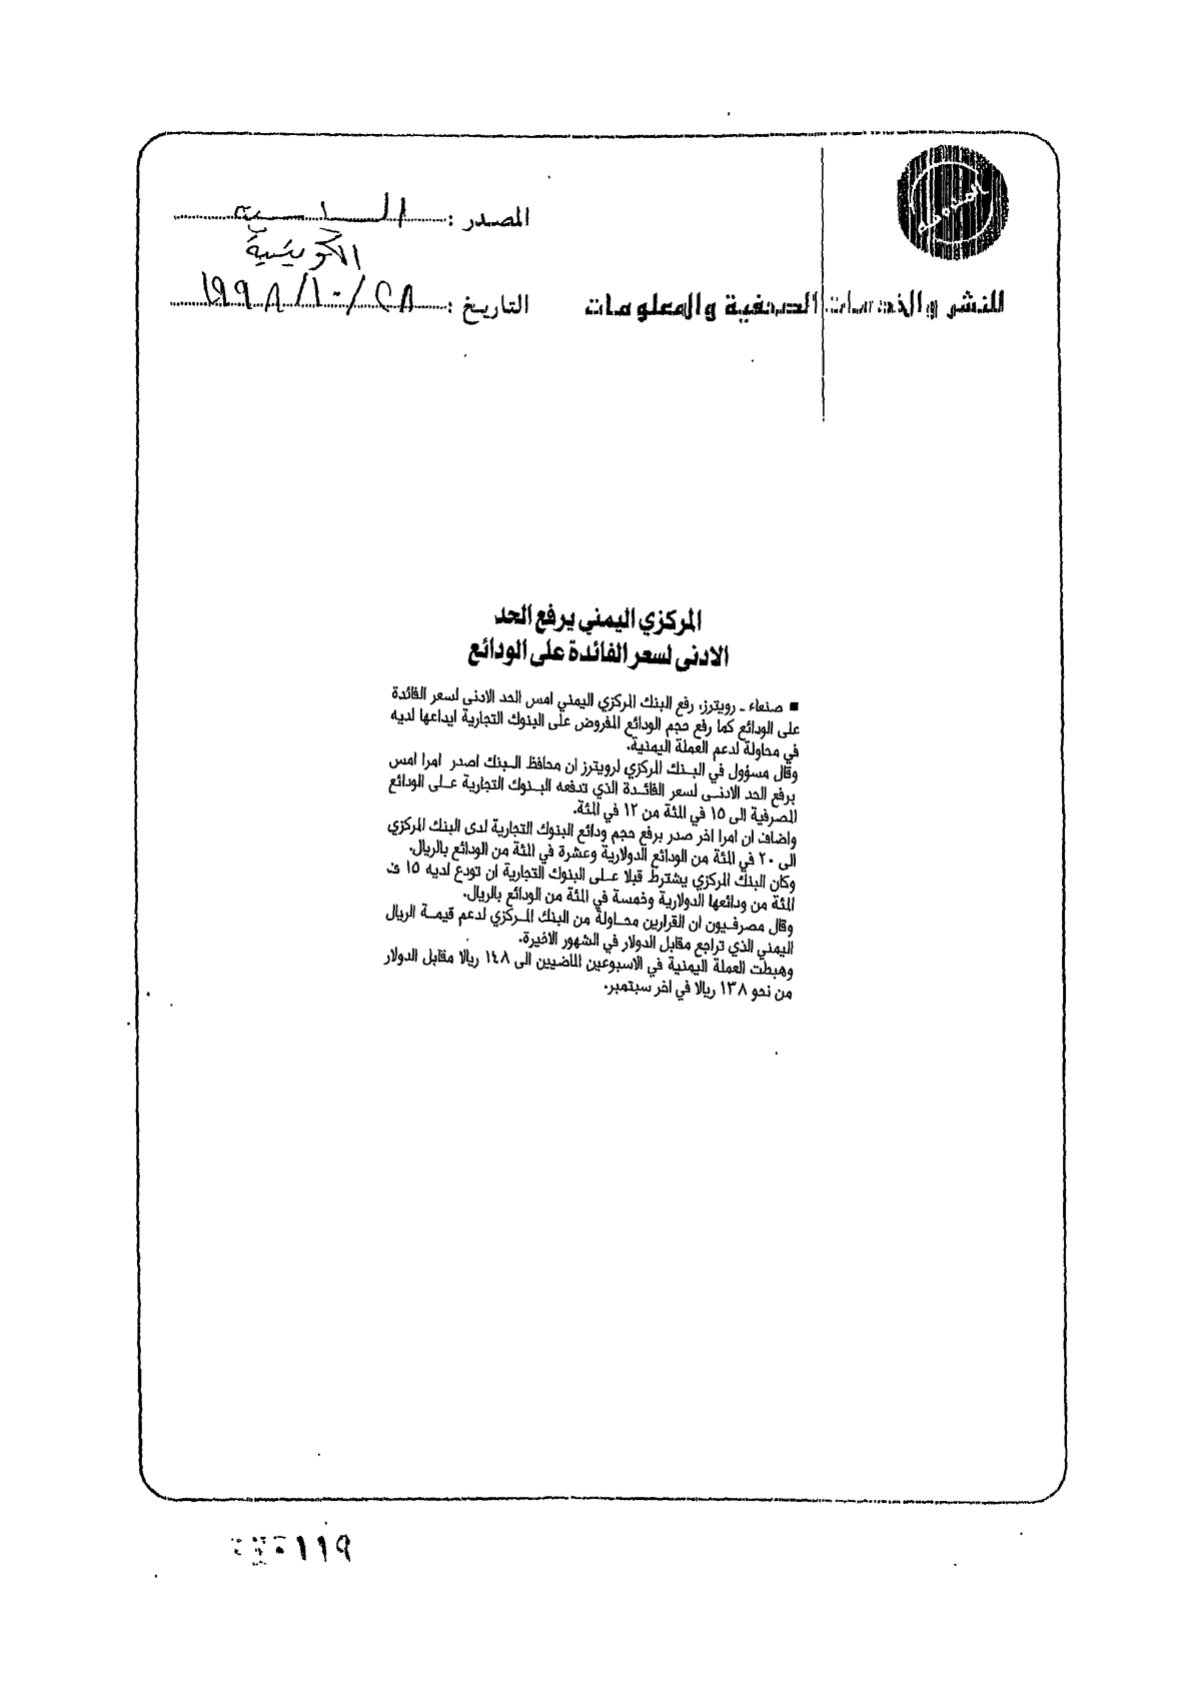 المصدر : السياسية
الكويتية
للنشر والخدمات الصحفية والمعلومات
التاريخ : ٢٨/١٠/١٩٩٨
المركزي اليمني يرفع الحد
الادنى لسعر الفائدة على الودائع
■ صنعاء - رويترز، رفع البنك المركزي اليمني امس الحد الادنى لسعر الفائدة
على الودائع كما رفع حجم الودائع المفروض على البنوك التجارية ايداعها لديه
في محاولة لدعم العملة اليمنية.
وقال مسؤول في البنك المركزي لرويترز ان محافظ البنك اصدر امرا امس
برفع الحد الادنى لسعر الفائدة الذي تدفعه البنوك التجارية على الودائع
المصرفية الى ١٥ في المئة من ١٢ في المئة.
واضاف ان امرا اخر صدر برفع حجم ودائع البنوك التجارية لدى البنك المركزي
الى ٢٠ في المئة من الودائع الدولارية وعشرة في المئة من الودائع بالريال.
وكان البنك المركزي يشترط قبلا على البنوك التجارية ان تودع لديه ١٥ ف
المئة من ودائعها الدولارية وخمسة في المئة من الودائع بالريال.
وقال مصرفيون ان القرارين محاولة من البنك المركزي لدعم قيمة الريال
اليمني الذي تراجع مقابل الدولار في الشهور الاخيرة.
وهبطت العملة اليمنية في الاسبوعين الماضيين الى ١٤٨ ريالا مقابل الدولار
من نحو ١٣٨ ريالا في اخر سبتمبر.